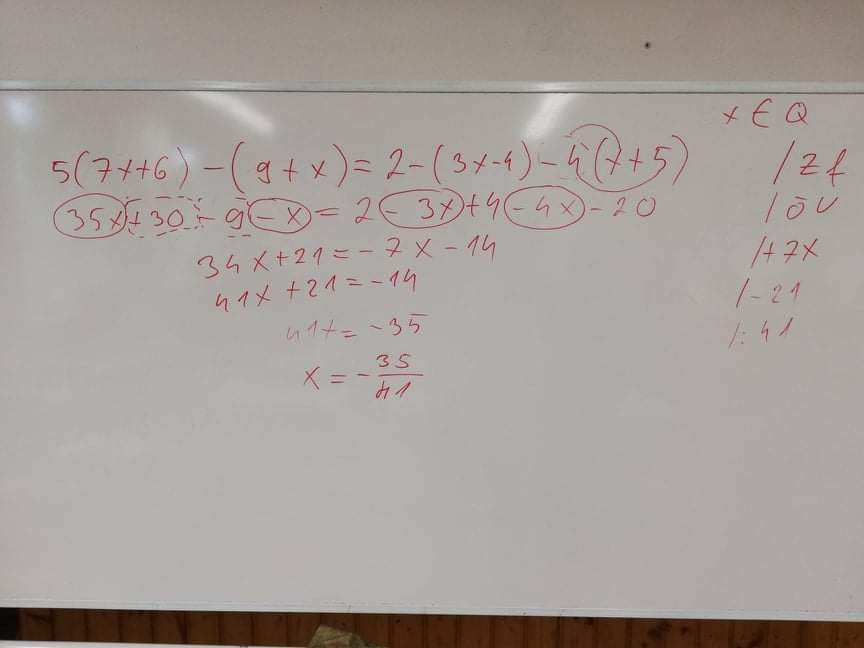 x ∈ Q
5(7x+6) - (9+x) = 2 - (3x-4) - 4(x+5) /zf
35x + 30 - 9 - x = 2 - 3x + 4 - 4x - 20 /öv
34x + 21 = -7x - 14 /+7x
41x + 21 = -14 /-21
41x = -35 /:41
x = -35/41